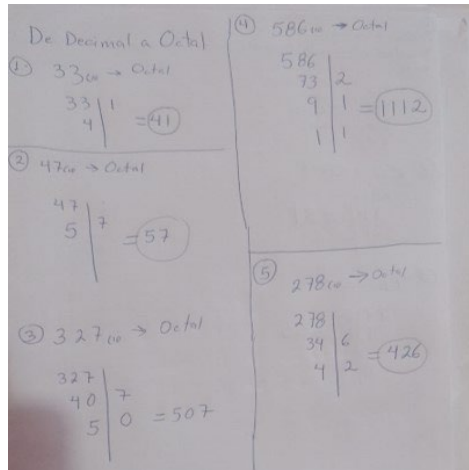 De Decimal a Octal
① 33₍₁₀₎ → Octal
33 | 1
4 | = 41
② 47₍₁₀₎ → Octal
47 |
5 | 7
= 57
③ 327₍₁₀₎ → Octal
327 |
40 | 7
5 | 0 = 507
④ 586₍₁₀₎ → Octal
586 |
73 | 2
9 | 1 = 1112
1 | 1
⑤ 278₍₁₀₎ → Octal
278 |
34 | 6
4 | 2 = 426